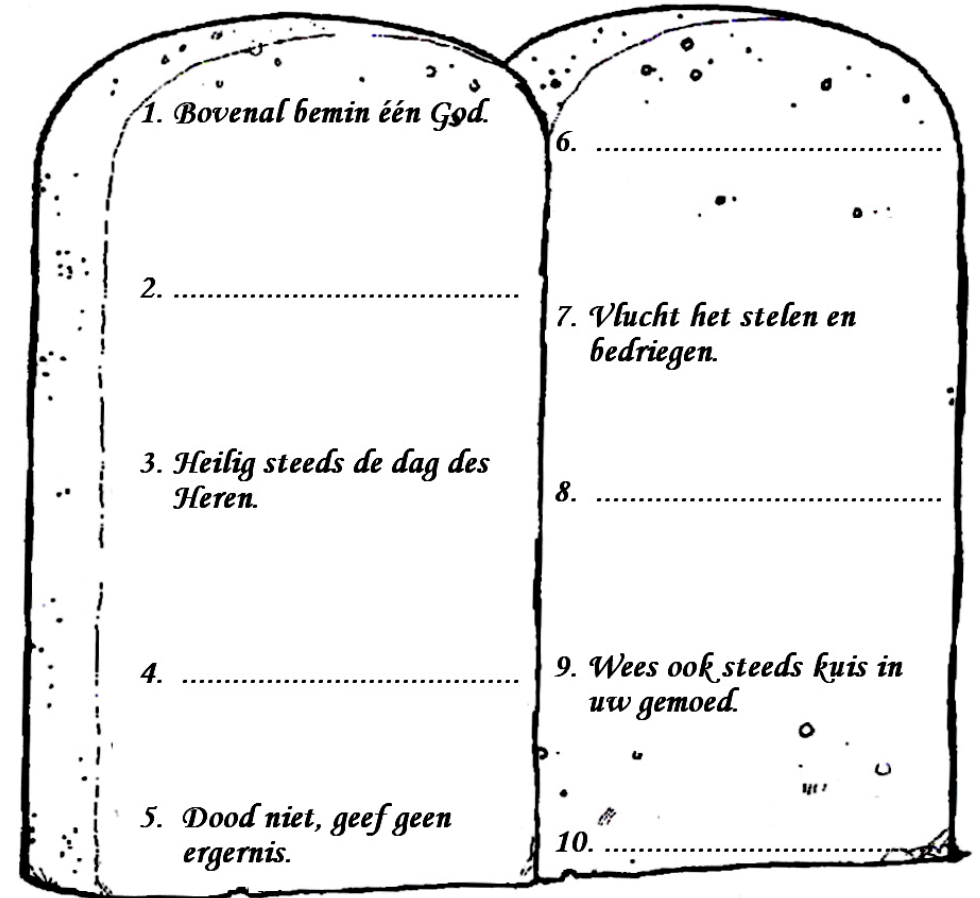 1. Bovenal bemin één God.
2. .........................................
3. Heilig steeds de dag des
Heren.
4. ........................................
5. Dood niet, geef geen
ergernis.
6. .........................................
7. Vlucht het stelen en
bedriegen.
8. .........................................
9. Wees ook steeds kuis in
uw gemoed.
10. ........................................